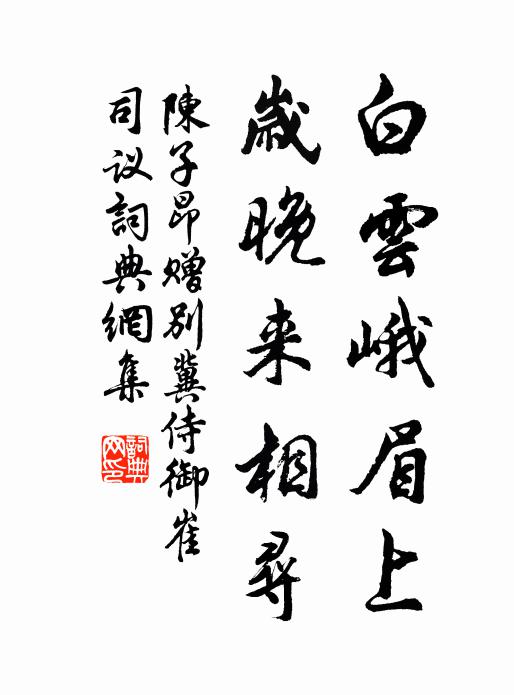 白雲峨眉上
歲晚来相尋
陳子昂赠别冀侍御崔
司议詞典網集
詞典网印